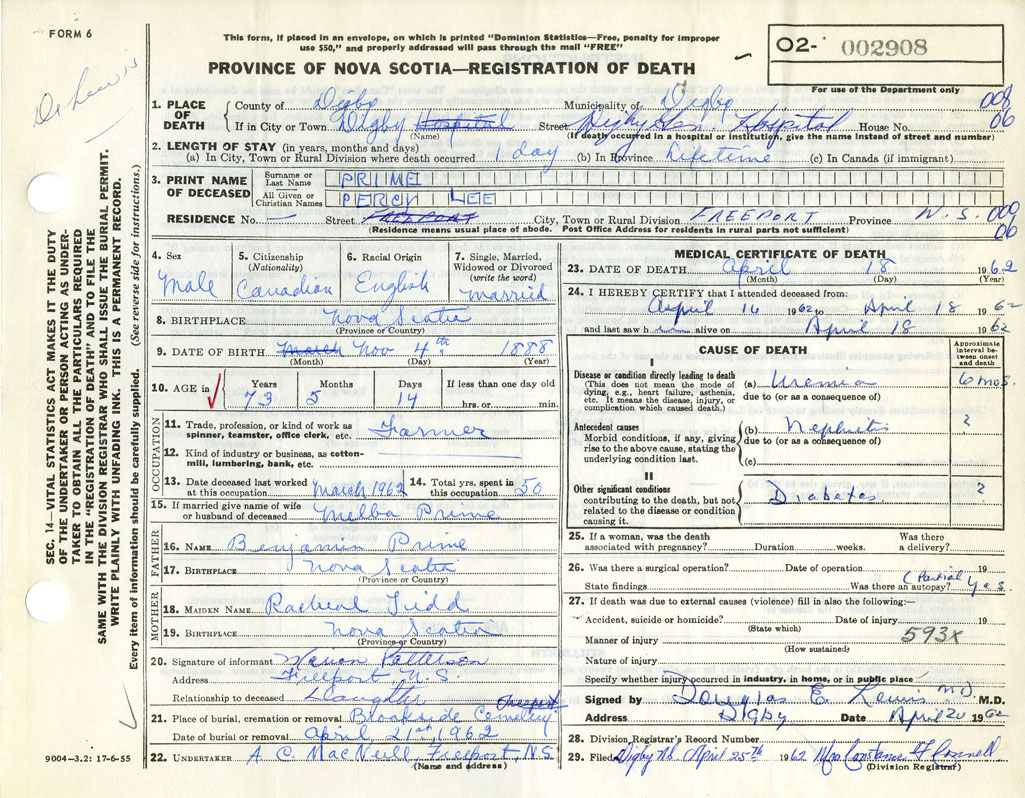 FORM 6
This form, if placed in an envelope, on which is printed "Dominion Statistics—Free, penalty for improper
use $50," and properly addressed will pass through the mail "FREE"
PROVINCE OF NOVA SCOTIA—REGISTRATION OF DEATH
02- 002908
For use of the Department only
Dr Lewis
1. PLACE OF DEATH
County of Digby Municipality of Digby 008
If in City or Town Digby Hospital Street Digby Gen. Hospital House No. 06
(Name) (If death occurred in a hospital or institution, give the name instead of street and number)
2. LENGTH OF STAY (in years, months and days)
(a) In City, Town or Rural Division where death occurred 1 day (b) In Province Lifetime (c) In Canada (if immigrant)
3. PRINT NAME OF DECEASED
Surname or Last Name PRIME
All Given or Christian Names PERCY LEE
RESIDENCE No. — Street FREEPORT City, Town or Rural Division FREEPORT Province N.S. 009
(Residence means usual place of abode. Post Office Address for residents in rural parts not sufficient) 06
4. Sex Male
5. Citizenship (Nationality) Canadian
6. Racial Origin English
7. Single, Married, Widowed or Divorced (write the word) Married
8. BIRTHPLACE Nova Scotia
(Province or Country)
9. DATE OF BIRTH March Nov 4th 1888
(Month) (Day) (Year)
10. AGE in Years 73 Months 5 Days 14 If less than one day old hrs. or min.
OCCUPATION
11. Trade, profession, or kind of work as spinner, teamster, office clerk, etc. Farmer
12. Kind of industry or business, as cotton-mill, lumbering, bank, etc.
13. Date deceased last worked at this occupation March 1962
14. Total yrs. spent in this occupation 50
15. If married give name of wife or husband of deceased Melba Prime
FATHER
16. NAME Benjamin Prime
17. BIRTHPLACE Nova Scotia
(Province or Country)
MOTHER
18. MAIDEN NAME Racheal Tidd
19. BIRTHPLACE Nova Scotia
(Province or Country)
20. Signature of informant Marion Patterson
Address Freeport, N.S.
Relationship to deceased Daughter
21. Place of burial, cremation or removal Brookside Cemetery Freeport
Date of burial or removal April 21st, 1962
22. UNDERTAKER A C MacNeill, Freeport, N.S.
(Name and address)
MEDICAL CERTIFICATE OF DEATH
23. DATE OF DEATH April 18 1962
(Month) (Day) (Year)
24. I HEREBY CERTIFY that I attended deceased from:
April 16 1962 to April 18 1962
and last saw him alive on April 18 1962
CAUSE OF DEATH
Approximate interval between onset and death
I
Disease or condition directly leading to death
(This does not mean the mode of dying, e.g., heart failure, asthenia, etc. It means the disease, injury, or complication which caused death.)
(a) Uremia 6 mos.
due to (or as a consequence of)
Antecedent causes
Morbid conditions, if any, giving rise to the above cause, stating the underlying condition last.
(b) Nephritis ?
due to (or as a consequence of)
(c)
II
Other significant conditions
contributing to the death, but not related to the disease or condition causing it.
Diabetes ?
25. If a woman, was the death associated with pregnancy? Duration weeks. Was there a delivery?
26. Was there a surgical operation? Date of operation 19
State findings Was there an autopsy? (Partial Yes.
27. If death was due to external causes (violence) fill in also the following:—
Accident, suicide or homicide? Date of injury 19
(State which)
Manner of injury 593X
(How sustained)
Nature of injury
Specify whether injury occurred in industry, in home, or in public place
Signed by Douglas E. Lewis M.D. M.D.
Address Digby Date April 20 1962
28. Division Registrar's Record Number
29. Filed Digby NS April 25th 1962 Mrs Constance
(Division Registrar)
SEC. 14—VITAL STATISTICS ACT MAKES IT THE DUTY
OF THE UNDERTAKER OR PERSON ACTING AS UNDER-
TAKER TO OBTAIN ALL THE PARTICULARS REQUIRED
IN THE "REGISTRATION OF DEATH" AND TO FILE THE
SAME WITH THE DIVISION REGISTRAR WHO SHALL ISSUE THE BURIAL PERMIT.
WRITE PLAINLY WITH UNFADING INK. THIS IS A PERMANENT RECORD.
Every item of information should be carefully supplied. (See reverse side for instructions.)
9004—3.2: 17-6-55